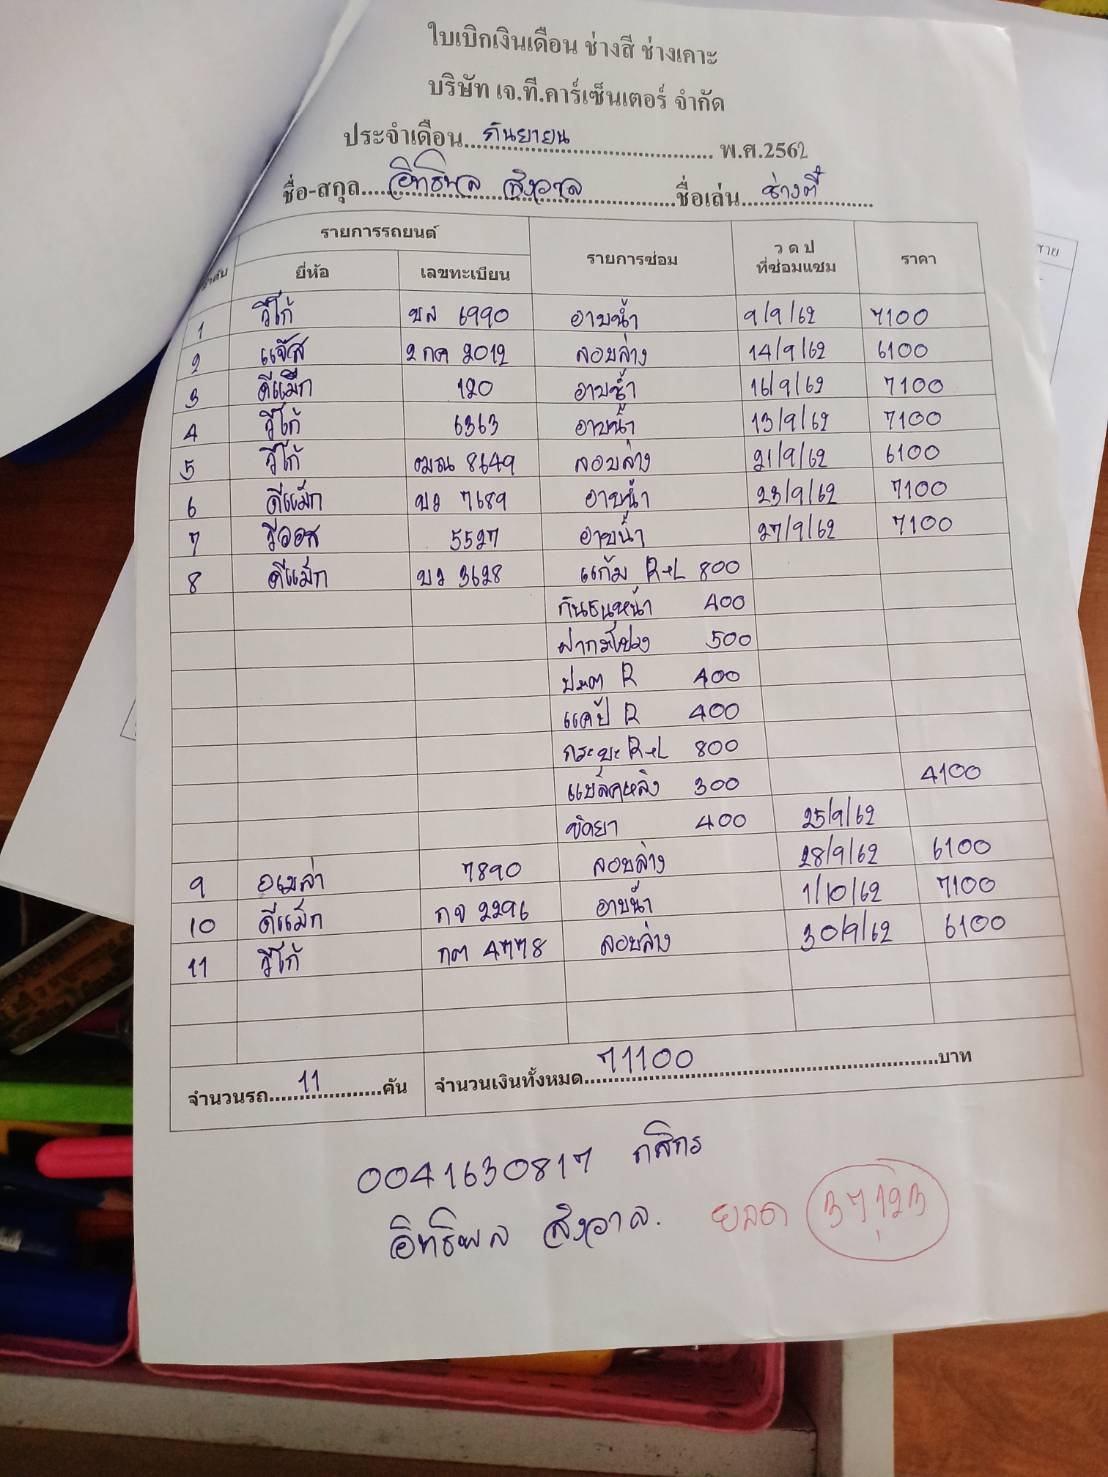 ใบเบิกเงินเดือน ช่างสี ช่างเคาะ
บริษัท เจ.ที.คาร์เซ็นเตอร์ จำกัด
ประจำเดือน....กันยายน.... พ.ศ.2562
ชื่อ-สกุล....อิทธิพล สิงวาล....ชื่อเล่น....ช่างตี๋....
รายการรถยนต์ รายการซ่อม ว ด ป ที่ซ่อมแซม ราคา
ยี่ห้อ เลขทะเบียน
1 วีโก้ ขล 6990 อาบน้ำ 9/9/62 7100
2 แจ๊ส 2 กด 2012 ลอบล่าง 14/9/62 6100
3 ดีแม็ก 120 อาบน้ำ 16/9/62 7100
4 วีโก้ 6363 อาบน้ำ 13/9/62 7100
5 วีโก้ 8649 ลอบล่าง 21/9/62 6100
6 ดีแม็ก บว 7689 อาบน้ำ 23/9/62 7100
7 วีออส 5527 อาบน้ำ 27/9/62 7100
8 ดีแม็ก บว 3628 แก้ม R+L 800
กันชนหน้า 400
ฝากระโปรง 500
ประตู R 400
แคป R 400
กระบะ R+L 800
แบล็คหลัง 300 4100
ขัดยา 400 25/9/62
9 7890 ลอบล่าง 28/9/62 6100
10 ดีแม็ก กจ 2296 อาบน้ำ 1/10/62 7100
11 วีโก้ กต 4778 ลอบล่าง 30/9/62 6100
จำนวนรถ....11....คัน จำนวนเงินทั้งหมด....71100....บาท
0041630817 กสิกร
อิทธิพล สิงวาล. ยอด 37,123